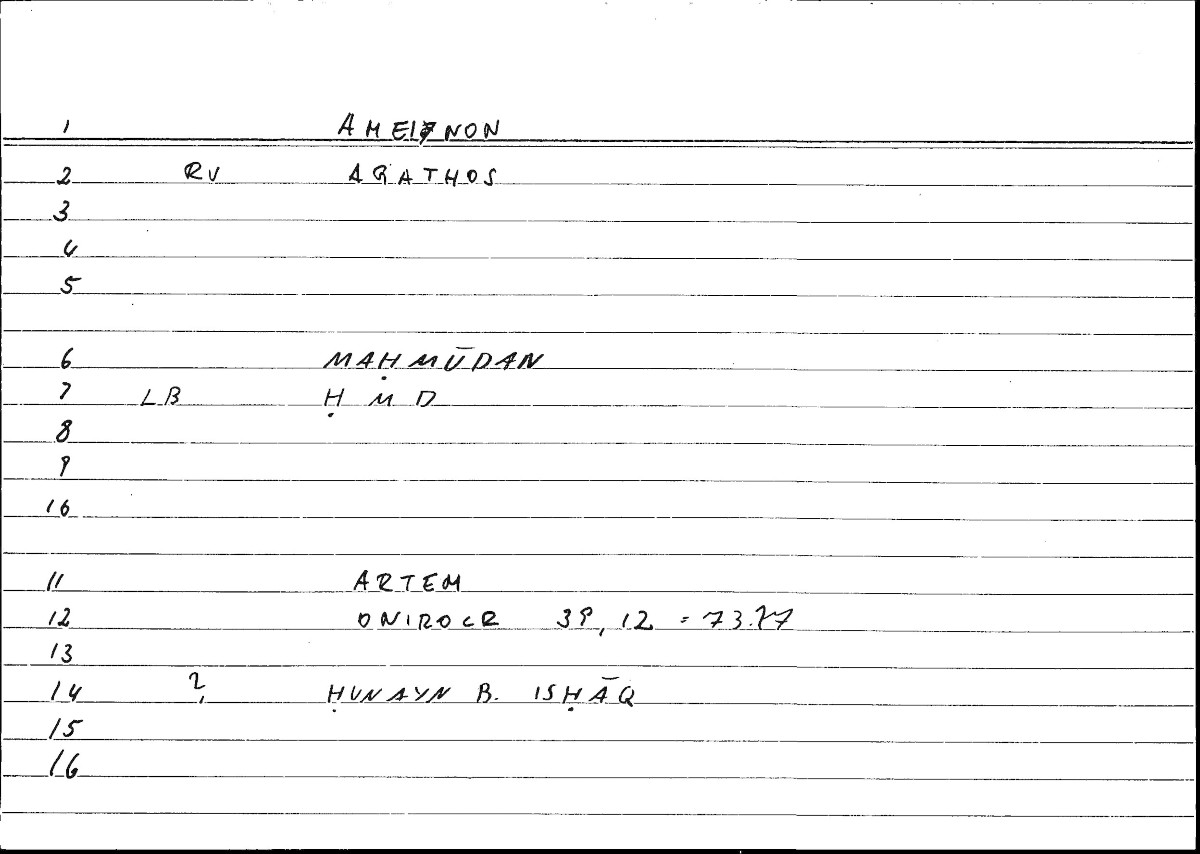 1 AMEINON
2 RV AGATHOS
3
4
5
6 MAḤMŪDAN
7 LB Ḥ M D
8
9
16
11 ARTEM
12 ONIROCR 39, 12 = 73.
13
14 ? ḤUNAYN B. ISḤĀQ
15
16